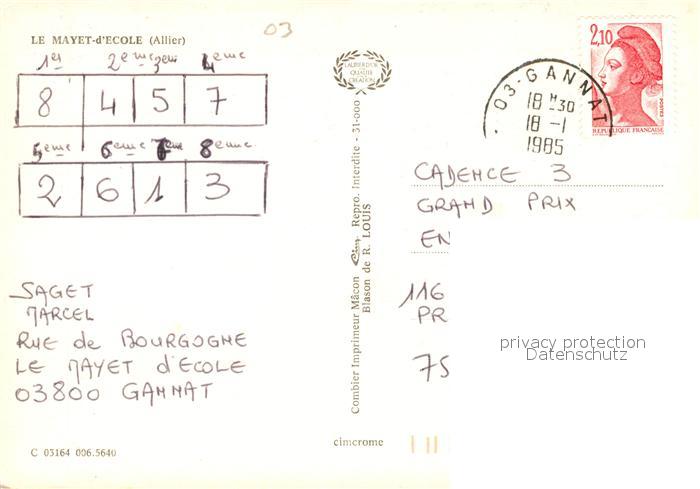 LE MAYET-d'ECOLE (Allier)
03
1er 2eme 3eme 4eme
8 4 5 7
5eme 6eme 7eme 8eme
2 6 1 3
SAGET
MARCEL
RUE de BOURGOGNE
LE MAYET d'ECOLE
03800 GANNAT
C 03164 006.5640
LAURIER D'OR
DE LA
QUALITE
CREATION
Combier Imprimeur Mâcon Cim Repro. Interdite - 31-000
Blason de R. LOUIS
cimcrome
2,10
POSTES
REPUBLIQUE FRANÇAISE
03-GANNAT
18 H 30
18 -1
1985
CADENCE 3
GRAND PRIX
EN
116
PR
75
privacy protection
Datenschutz